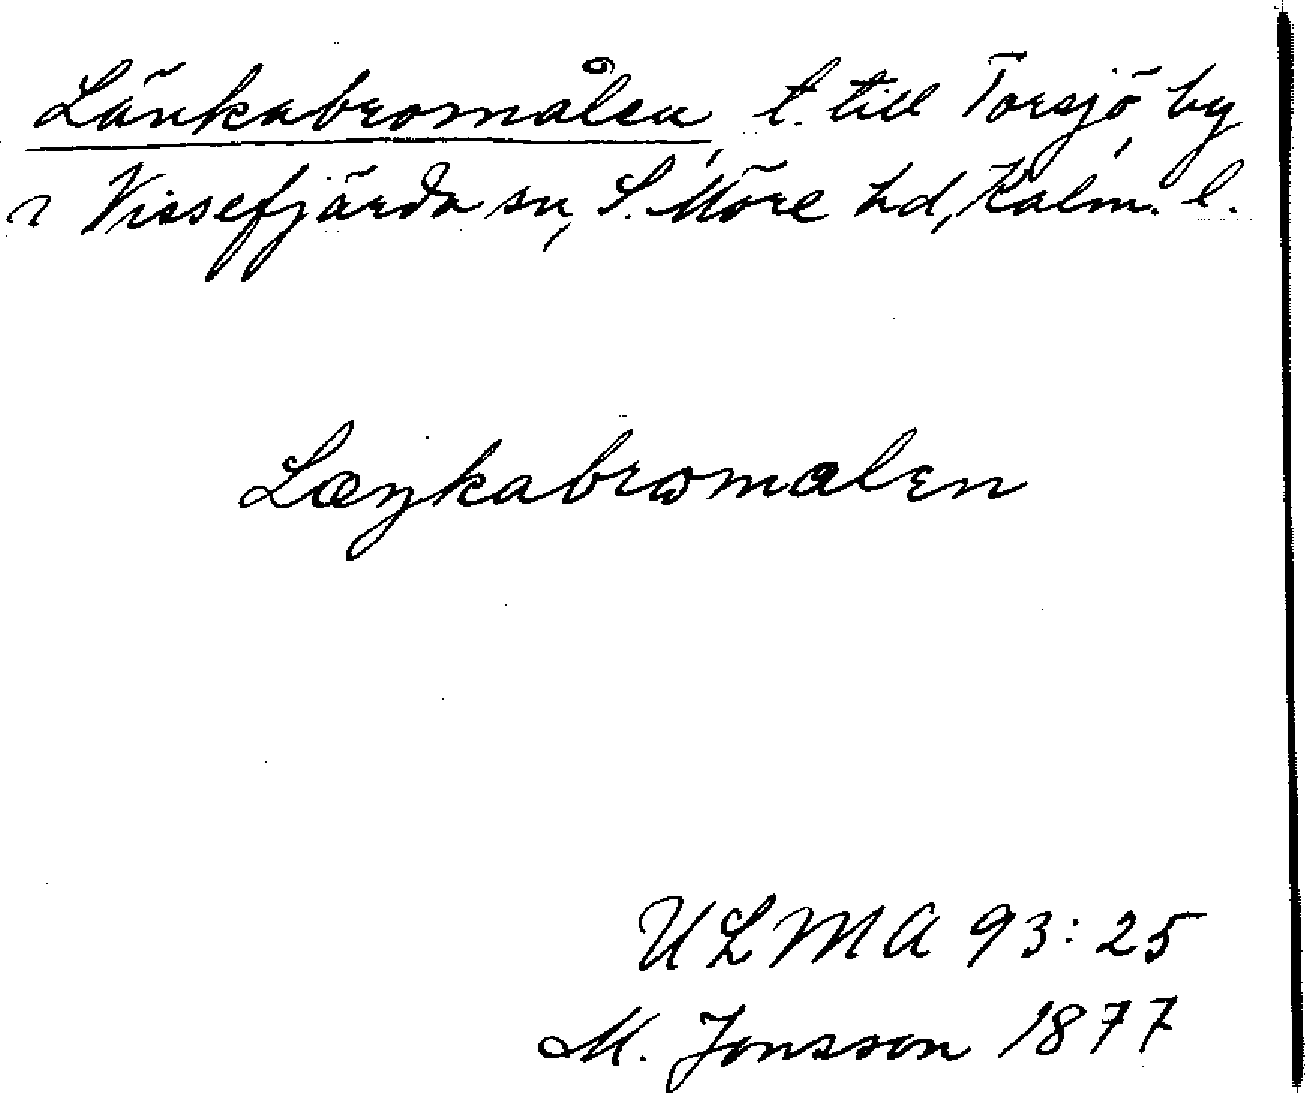 Länkabromålen, t. till Torsjö, by
i Vissefjärda sn, S. Möre hd, Kalm. l.
Læŋkabrωmalen
ULMA 93:25
M. Jonsson 1877